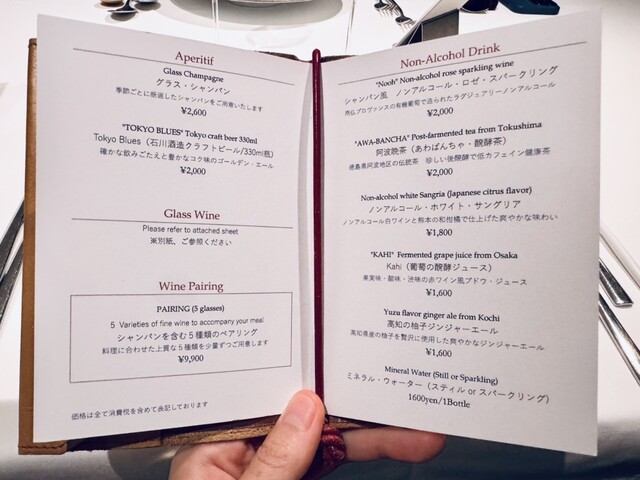 Aperitif
Glass Champagne
グラス・シャンパン
季節ごとに厳選したシャンパンをご用意いたします
¥2,600
"TOKYO BLUES" Tokyo craft beer 330ml
Tokyo Blues（石川酒造クラフトビール/330ml瓶）
確かな飲みごたえと豊かなコク味のゴールデン・エール
¥2,000
Glass Wine
Please refer to attached sheet
※別紙、ご参照ください
Wine Pairing
PAIRING (5 glasses)
5 Varieties of fine wine to accompany your meal
シャンパンを含む５種類のペアリング
料理に合わせた上質な５種類を少量ずつご用意します
¥9,900
価格は全て消費税を含めて表記しております
Non-Alcohol Drink
"Nooh" Non-alcohol rose sparkling wine
シャンパン風　ノンアルコール・ロゼ・スパークリング
南仏プロヴァンスの有機葡萄で造られたラグジュアリーノンアルコール
¥2,000
"AWA-BANCHA" Post-farmented tea from Tokushima
阿波晩茶（あわばんちゃ・醗酵茶）
徳島県阿波地区の伝統茶　珍しい後醗酵で低カフェイン健康茶
¥2,000
Non-alcohol white Sangria (Japanese citrus flavor)
ノンアルコール・ホワイト・サングリア
ノンアルコール白ワインと熊本の和柑橘で仕上げた爽やかな味わい
¥1,800
"KAHI" Fermented grape juice from Osaka
Kahi（葡萄の醗酵ジュース）
果実味・酸味・渋味の赤ワイン風ブドウ・ジュース
¥1,600
Yuzu flavor ginger ale from Kochi
高知の柚子ジンジャーエール
高知県産の柚子を贅沢に使用した爽やかなジンジャーエール
¥1,600
Mineral Water (Still or Sparkling)
ミネラル・ウォーター（スティル or スパークリング）
1600yen/1Bottle